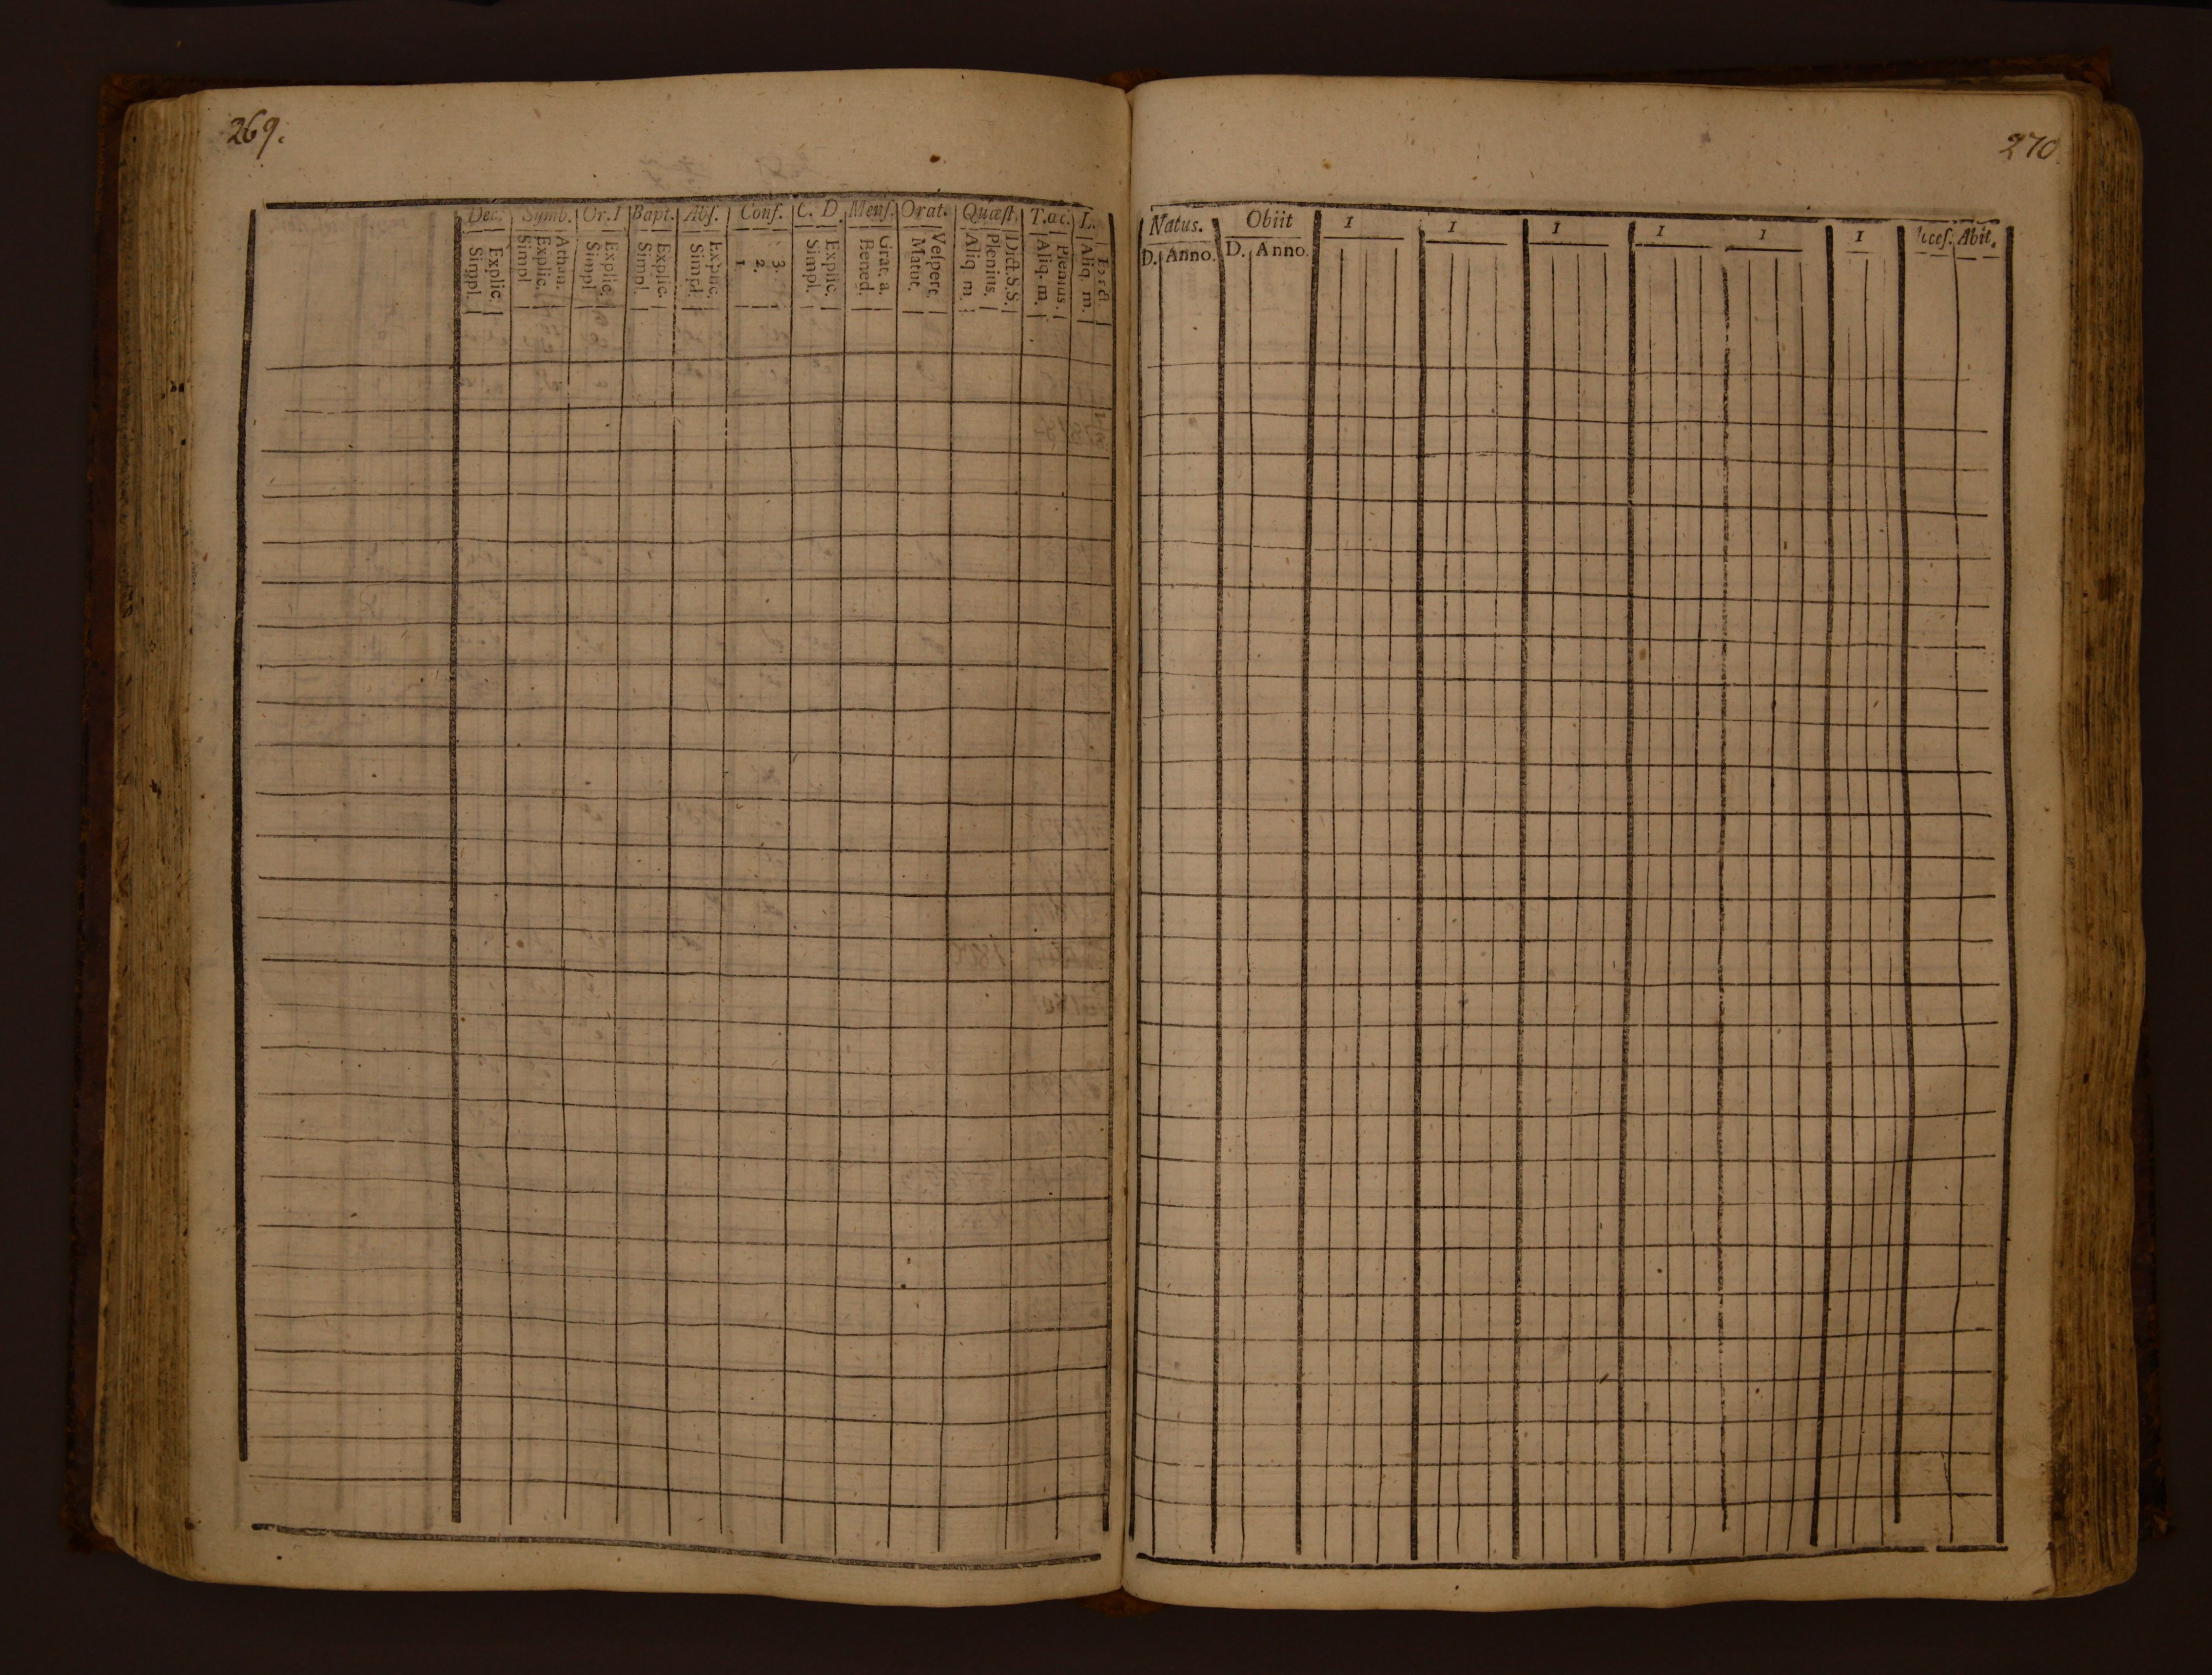 269.
270
Dec. Symb. Or. I Bapt. Abſ. Conf. C. D. Menſ. Orat. Quæſt. T.ac. L.
Explic. Simpl.
Athan. Explic. Simpl
Explic. Simpl.
Explic. Simpl.
Explic. Simpl.
3. 2. 1
Explic. Simpl.
Grat. a. Bened.
Veſpere. Matut.
Dict. S. S. Plenius. Aliq m.
Plenius. Aliq. m.
Aliq m.
Natus. Obiit I I I I I I Abit.
D. Anno. D. Anno.